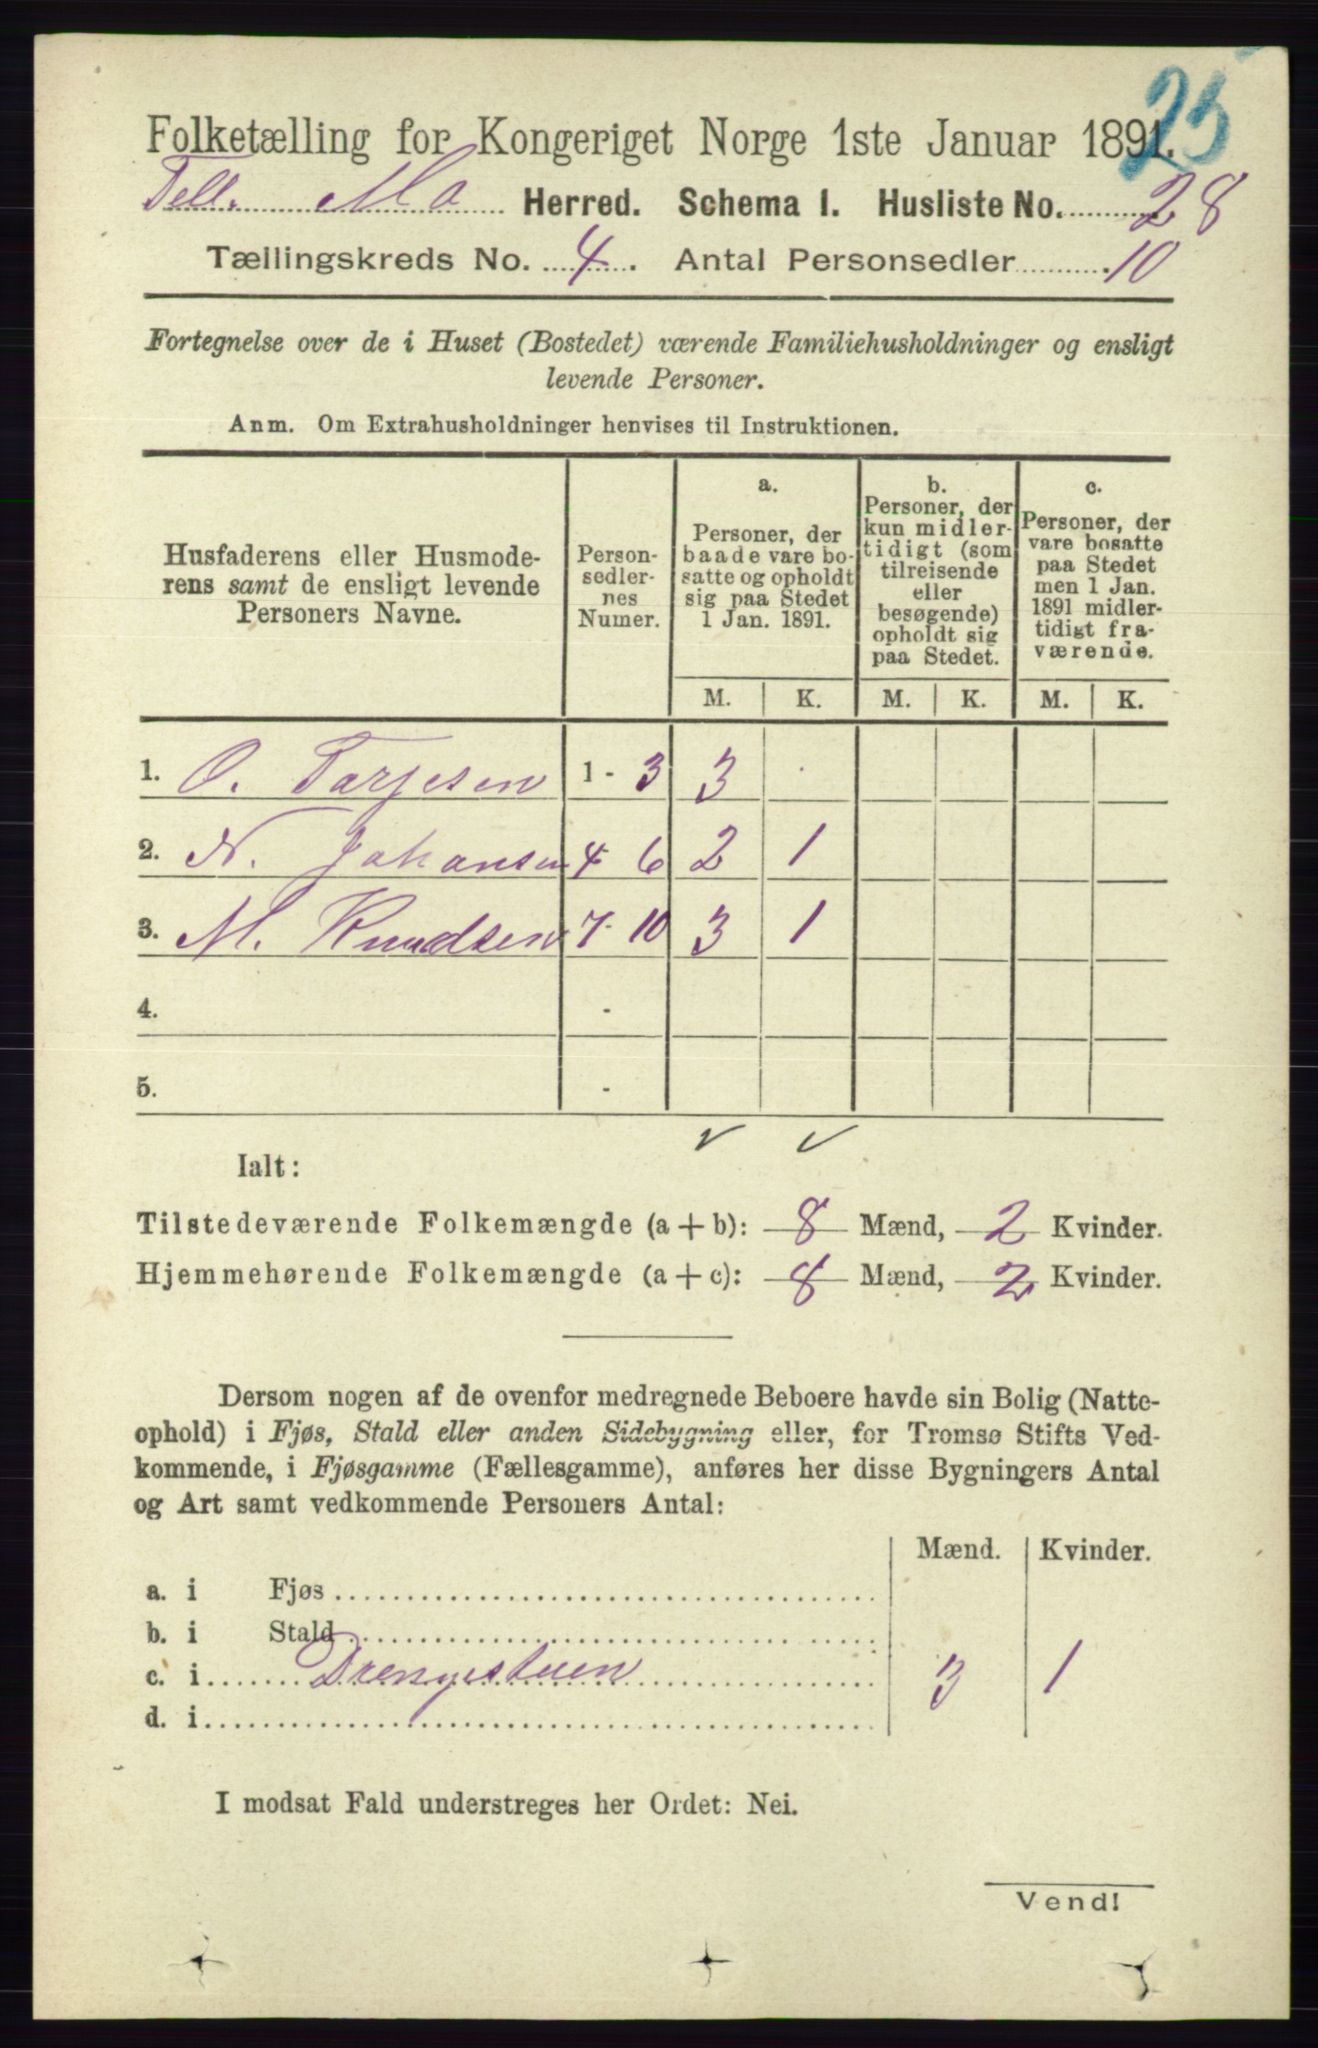 25
Folketælling for Kongeriget Norge 1ste Januar 1891.
Tell. Mo Herred. Schema I. Husliste No. 28
Tællingskreds No. 4. Antal Personsedler 10
Fortegnelse over de i Huset (Bostedet) værende Familiehusholdninger og ensligt
levende Personer.
Anm. Om Extrahusholdninger henvises til Instruktionen.
Husfaderens eller Husmode-
rens samt de ensligt levende
Personers Navne.
Person-
sedler-
nes
Numer.
a.
Personer, der
baade vare bo-
satte og opholdt
sig paa Stedet
1 Jan. 1891.
b.
Personer, der
kun midler-
tidigt (som
tilreisende
eller
besøgende)
opholdt sig
paa Stedet.
c.
Personer, der
vare bosatte
paa Stedet
men 1 Jan.
1891 midler-
tidigt fra-
værende.
M. K. M. K. M. K.
1. O. Tarjesen 1 - 3 3 .
2. N. Johansen 4 6 2 1
3. M. Knudsen 7- 10 3 1
4. -
5. -
Ialt:
Tilstedeværende Folkemængde (a + b): 8 Mænd, 2 Kvinder.
Hjemmehørende Folkemængde (a + c): 8 Mænd, 2 Kvinder.
Dersom nogen af de ovenfor medregnede Beboere havde sin Bolig (Natte-
ophold) i Fjøs, Stald eller anden Sidebygning eller, for Tromsø Stifts Ved-
kommende, i Fjøsgamme (Fællesgamme), anføres her disse Bygningers Antal
og Art samt vedkommende Personers Antal:
Mænd. Kvinder.
a. i Fjøs
b. i Stald
c. i Drengestuen 3 1
d. i
I modsat Fald understreges her Ordet: Nei.
Vend!